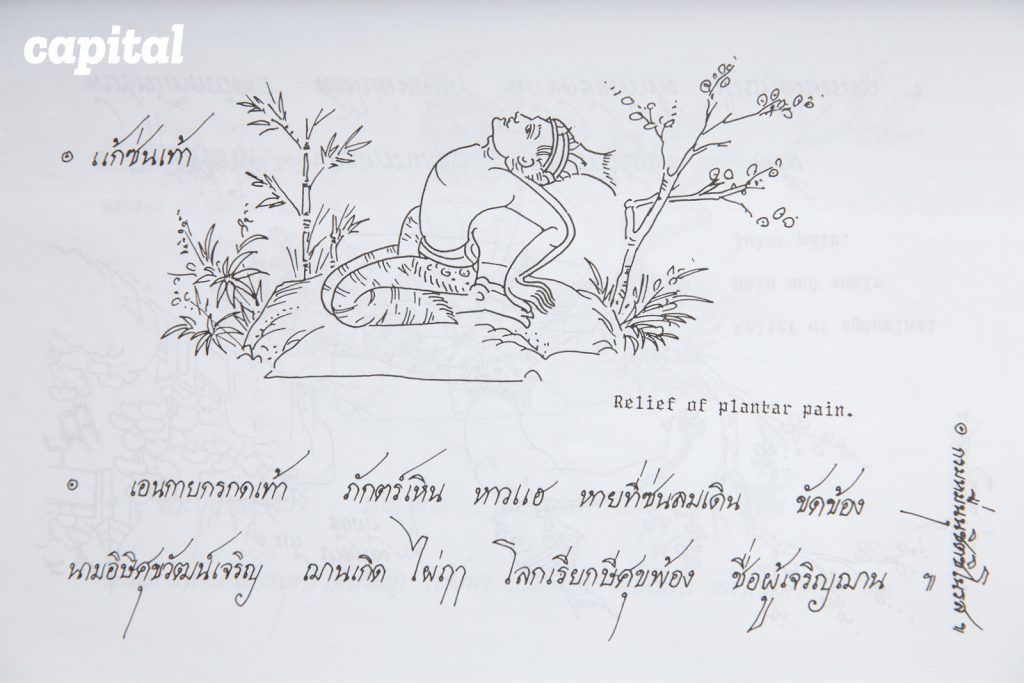 capital
๏ แก้ซ่นเท้า
Relief of plantar pain.
๏ เอนกายกรกดเท้า ภักตร์เหิน หาวแฮ หายที่ซ่นลมเดิน ขัดข้อง
นามอิษิศุขวัฒน์เจริญ ฌานเกิด ไผ่ฤๅ โลกเรียกษีศุขพ้อง ชื่อผู้เจริญฌาน ๚